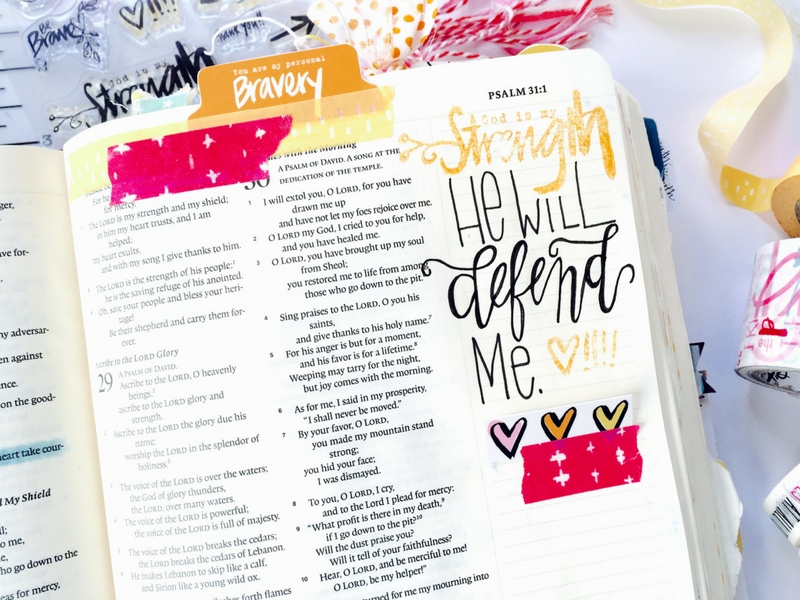 Brave
Thank you!!
God is my
Strength
You are my personal
Bravery
PSALM 31:1
God is my
Strength
He will
defend
Me.
!!!!
ger,
ave for-
my adversar-
en against
ence.
on the good-
heart take cour-
My Shield
ll;
o me,
ne,
who go down to the
eas for mercy,
For he
for mercy.
The LORD is my strength and my shield;
in him my heart trusts, and I am
helped;
my heart exults,
and with my song I give thanks to him.
The LORD is the strength of his people;
he is the saving refuge of his anointed.
Oh, save your people and bless your heri-
tage!
Be their shepherd and carry them for-
ever.
Ascribe to the LORD Glory
29 A PSALM OF DAVID.
Ascribe to the LORD, O heavenly
beings,
ascribe to the LORD glory and
strength.
Ascribe to the LORD the glory due his
name;
worship the LORD in the splendor of
holiness.
The voice of the LORD is over the waters;
the God of glory thunders,
the LORD, over many waters.
The voice of the LORD is powerful;
the voice of the LORD is full of majesty.
The voice of the LORD breaks the cedars;
the LORD breaks the cedars of Lebanon.
He makes Lebanon to skip like a calf,
and Sirion like a young wild ox.
flashes forth flames
with the Morning
30 A PSALM OF DAVID. A SONG AT THE
DEDICATION OF THE TEMPLE.
1 I will extol you, O LORD, for you have
drawn me up
and have not let my foes rejoice over me.
2 O LORD my God, I cried to you for help,
and you have healed me.
3 O LORD, you have brought up my soul
from Sheol;
you restored me to life from among
those who go down to the pit.
4 Sing praises to the LORD, O you his
saints,
and give thanks to his holy name.7
5 For his anger is but for a moment,
and his favor is for a lifetime.8
Weeping may tarry for the night,
but joy comes with the morning.
6 As for me, I said in my prosperity,
"I shall never be moved."
7 By your favor, O LORD,
you made my mountain stand
strong;
you hid your face;
I was dismayed.
8 To you, O LORD, I cry,
and to the Lord I plead for mercy:
9 "What profit is there in my death,9
if I go down to the pit?10
Will the dust praise you?
Will it tell of your faithfulness?
10 Hear, O LORD, and be merciful to me!
O LORD, be my helper!"
turned for me my mourning into